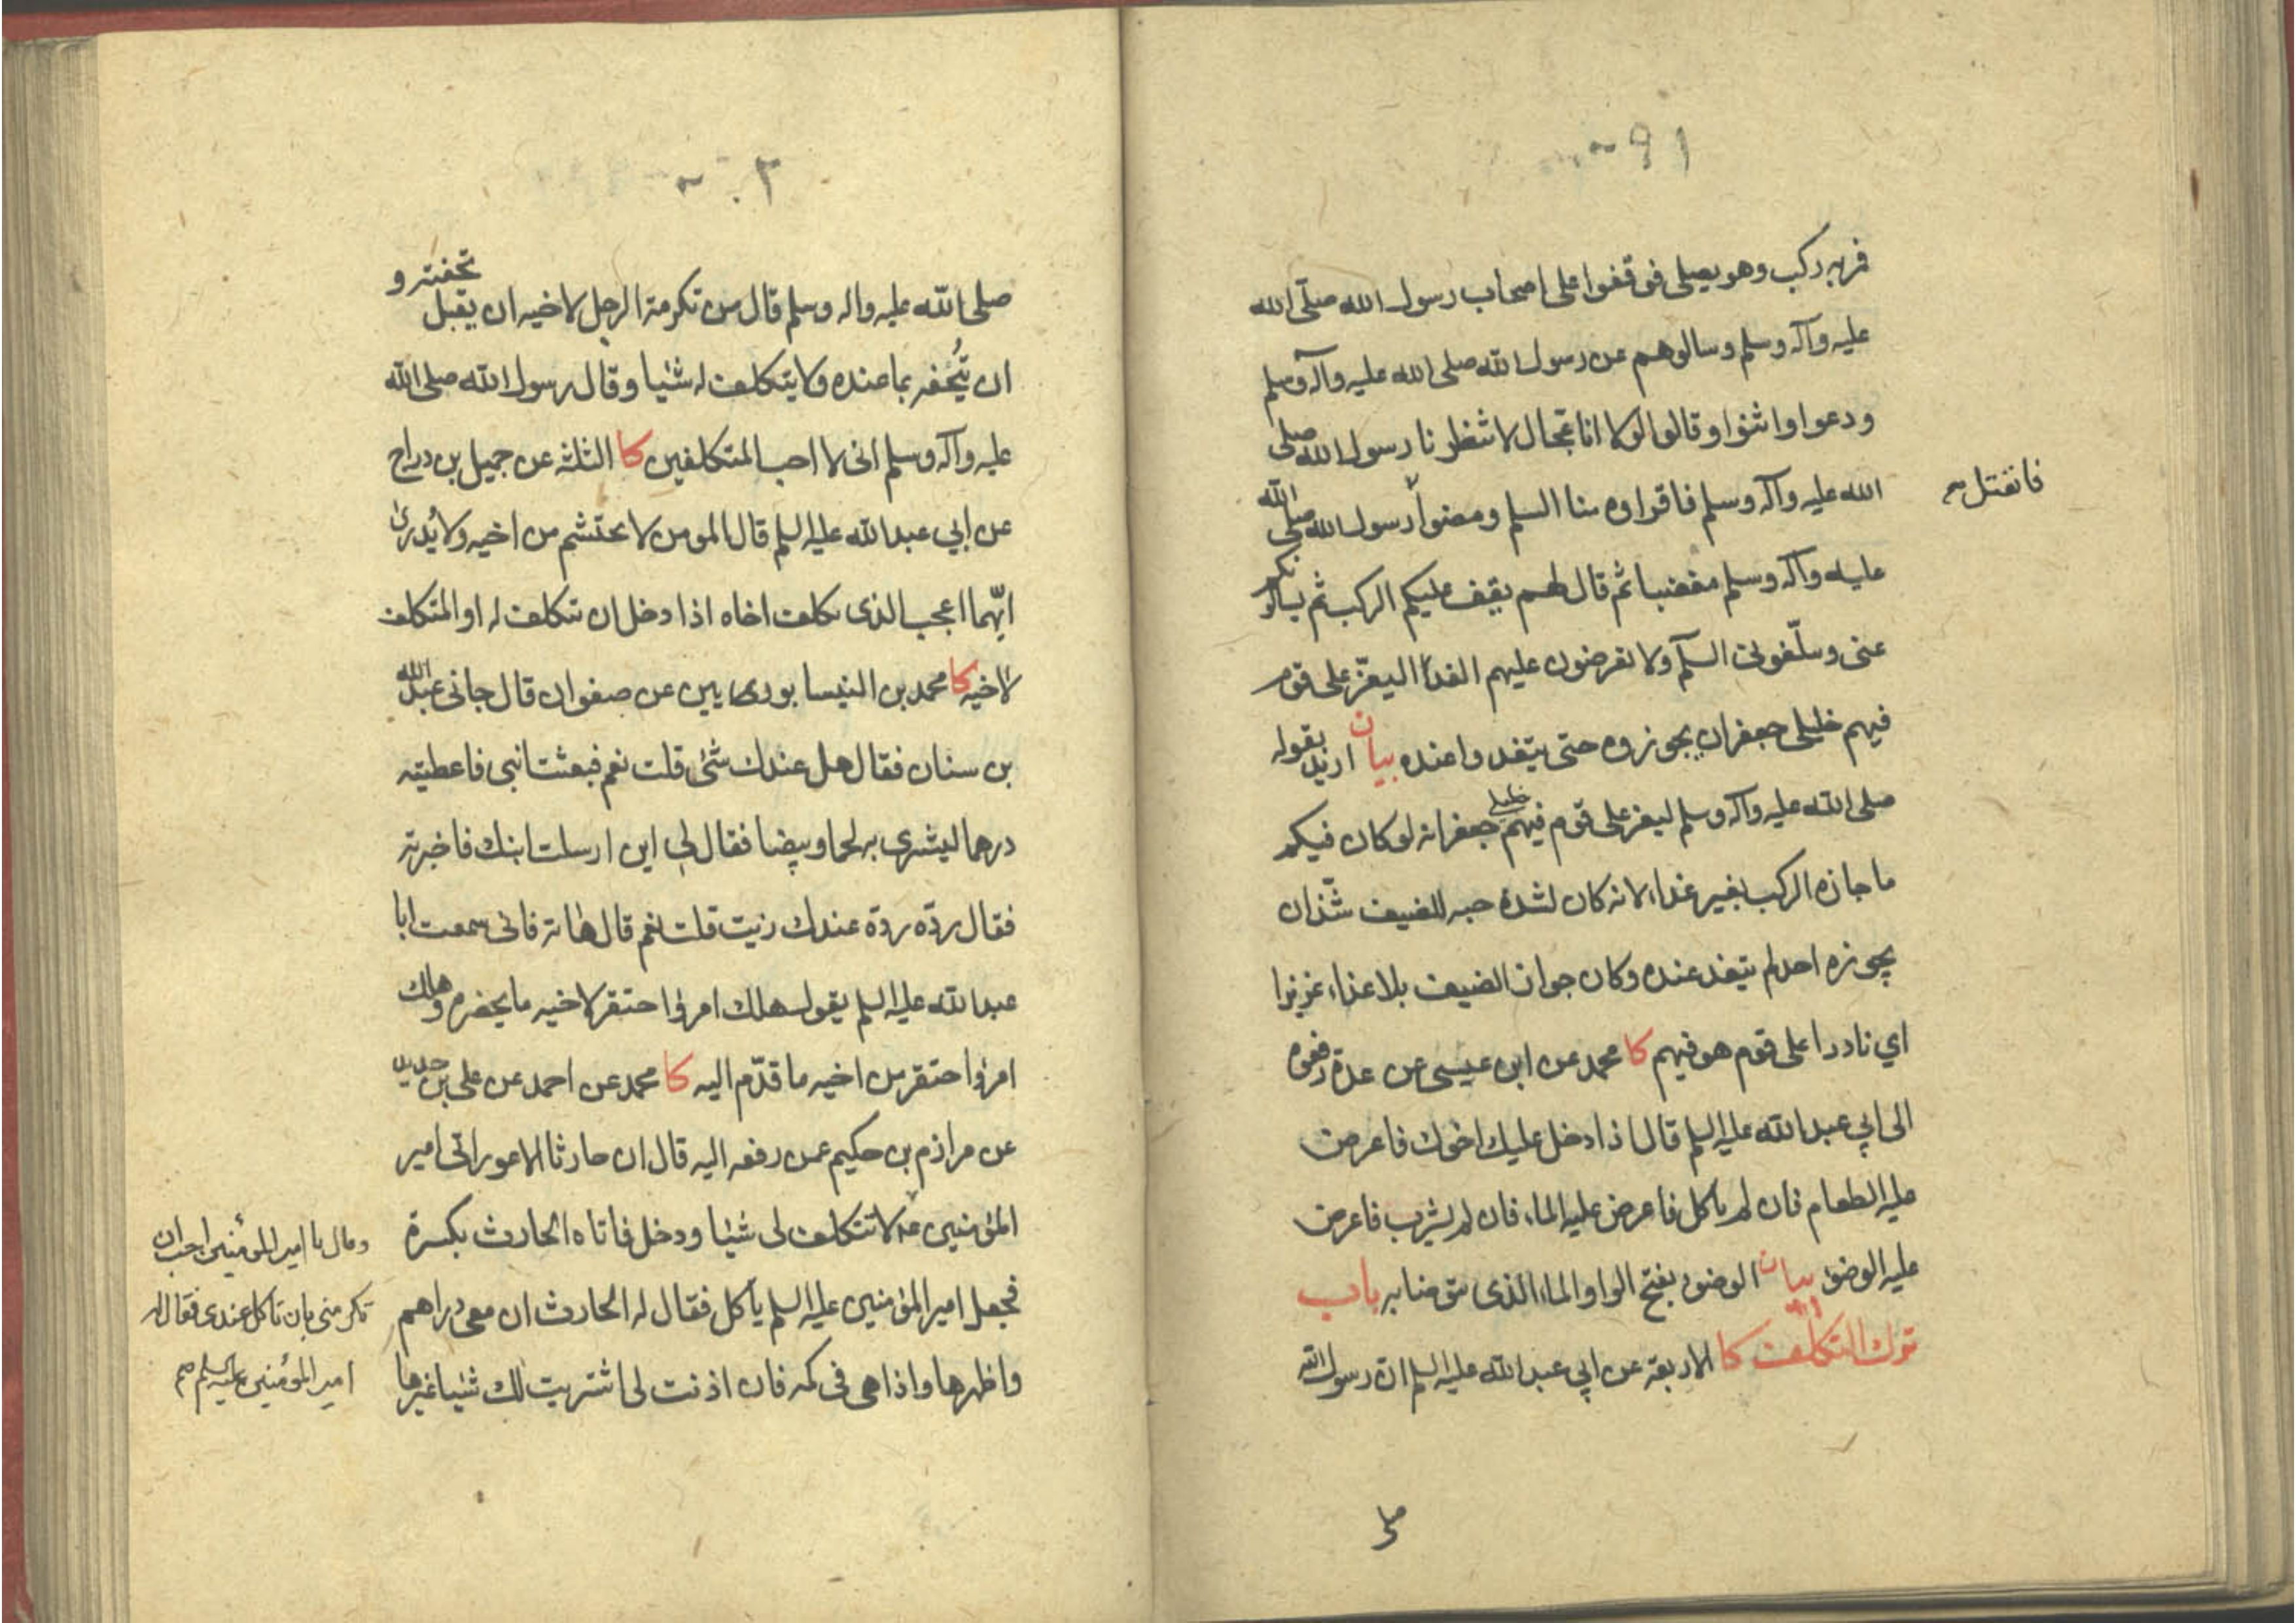 فمر به ركب وهو يصلى فوقفوا على اصحاب رسول الله صلى الله
عليه وآله وسلم وسالوهم عن رسول الله صلى الله عليه وآله وسلم
ودعوا واثنوا وقالوا لولا انا عجال لانتظرنا رسول الله صلى
الله عليه وآله وسلم فاقراوه منا السلم ومضوا رسول الله صلى الله
فانفتل
عليه وآله وسلم مغضبا ثم قال لهم يقف عليكم الركب ثم يسالونكم
عنى ويبلغونى السلم ولا تعرضون عليهم الغداء ليعز على قوم
فيهم خليلى جعفر ان يجوزوه حتى يتغدوا عنده بيان اريد بقوله
صلى الله عليه وآله وسلم ليعز على قوم فيهم خليلى جعفر انه لو كان فيكم
ما جازه الركب بغير غداء لانه كان لشدة حبه للضيف شذ ان
يجوزه احد لم يتغد عنده وكان جواز الضيف بلا غذاء عزيزا
اي نادرا على قوم هو فيهم كا محمد عن ابن عيسى عن عدة رفعوه
الى ابي عبد الله عليه السلم قال اذا دخل عليك اخوك فاعرض
عليه الطعام فان لم ياكل فاعرض عليه الماء فان لم يشرب فاعرض
عليه الوضوء بيان الوضوء بفتح الواو الماء الذى يتوضا به باب
ترك التكلف كا الاربعة عن ابي عبد الله عليه السلم ان رسول الله
صلى
٣٠
صلى الله عليه واله وسلم قال من تكرمة الرجل لاخيه ان يقبل تحفته و
ان يُتحفه بما عنده ولا يتكلف له شئيا وقال رسول الله صلى الله
عليه وآله وسلم انى لا احب المتكلفين كا الثلثه عن جميل بن دراج
عن ابي عبد الله عليه السلم قال المومن لا يحتشم من اخيه ولا يُدرى
ايّهما اعجب الذى يكلف اخاه اذا دخل ان يتكلف له او المتكلف
لاخيه كا محمد بن النيسابورىيين عن صفوان قال جانى عبد الله
بن سنان فقال هل عندك شئ قلت نعم فبعثت ابنى فاعطيته
درهما ليشترى به لحما وبيضا فقال لى اين ارسلت ابنك فاخبرته
فقال ردّه ردّه عندك زيت قلت نعم قال هاته فانى سمعت ابا
عبد الله عليه السلم يقول هلك امرؤ احتقر لاخيه ما يحضره وهلك
امرؤ احتقر من اخيه ما قدّم اليه كا محمد عن احمد عن على بن حديد
عن مرازم بن حكيم عمن رفعه اليه قال ان حارثا الاعور اتى امير
المؤمنين لا تتكلف لى شئيا ودخل فاتاه الحارث بكسرة
فجعل امير المؤمنين عليه السلم ياكل فقال له الحارث ان معى دراهم
واظهرها واذا هى فى كمه فان اذنت لى اشتريت لك شئيا غيرها
وقال يا امير المؤمنين احب ان
تكرمنى بان تاكل عندى فقال له
امير المؤمنين عليه السلم